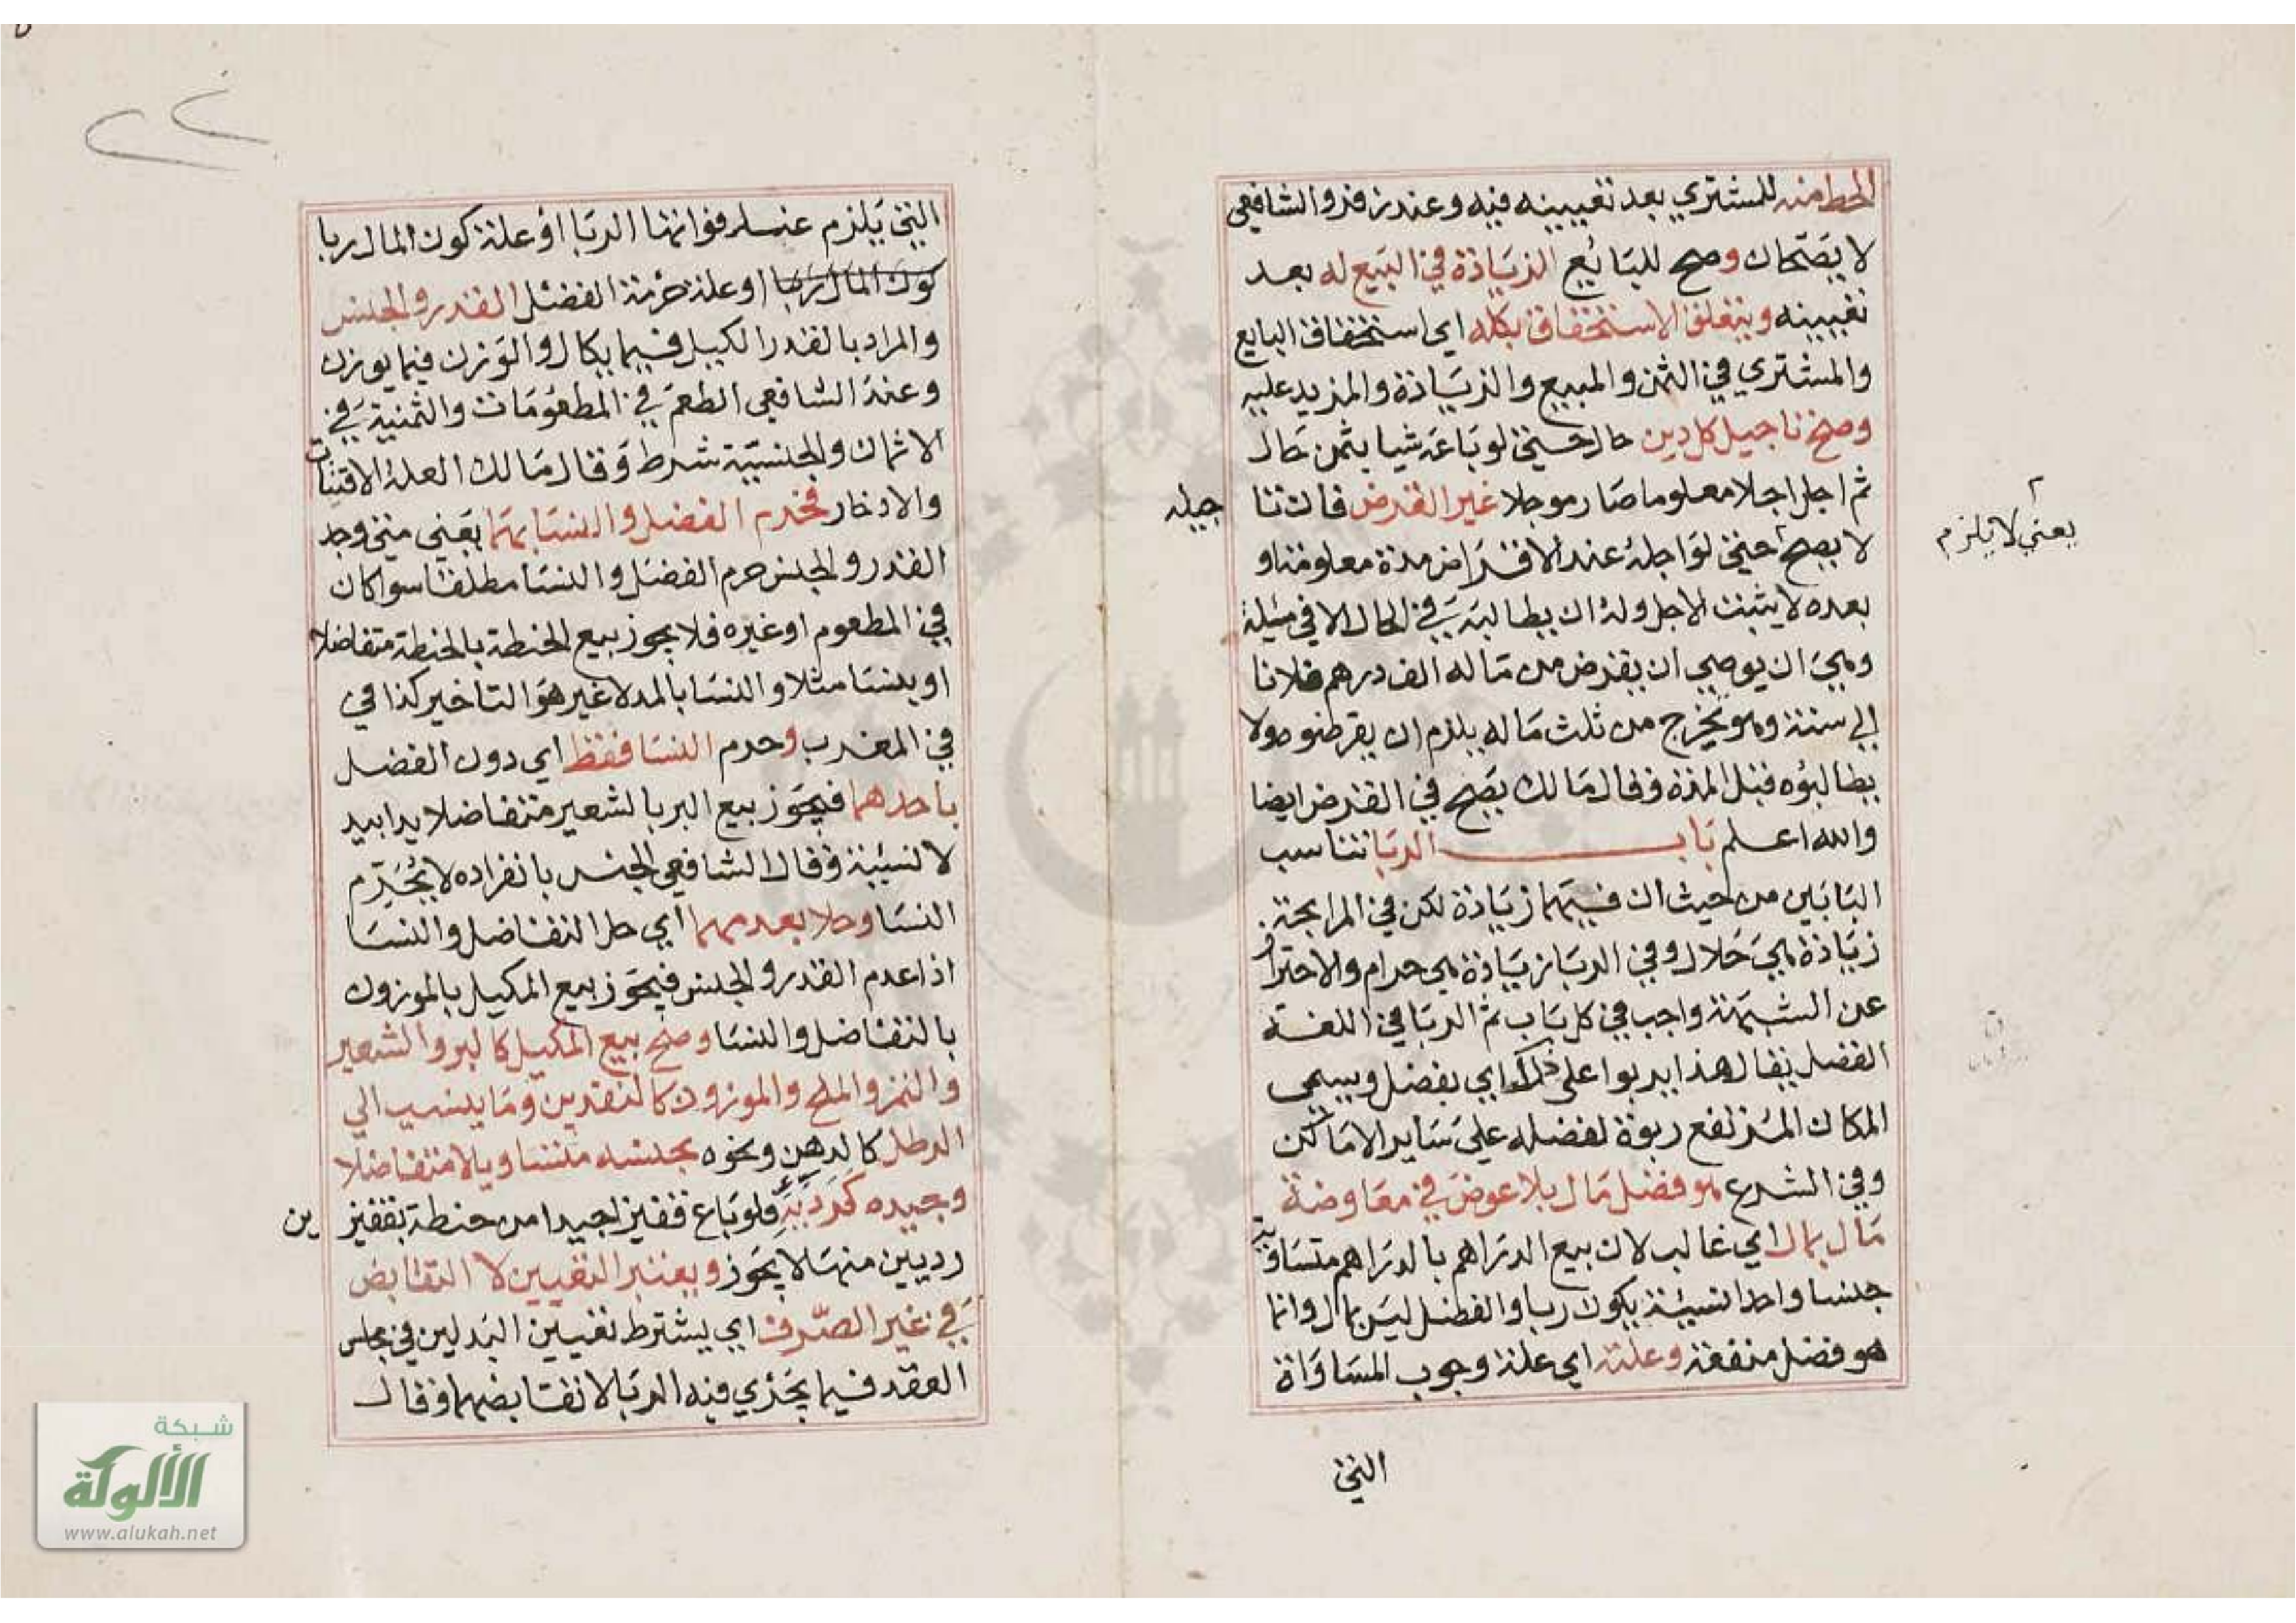 الحط منه للمشتري بعد تعيينه فيه وعند زفر والشافعي
لا يصحان وصح للبائع الزيادة في المبيع له بعد
تعيينه ويتعلق الاستحقاق بكله اي استحقاق البايع
والمشتري في الثمن والمبيع والزيادة والمزيد عليه
وصح تاجيل كل دين حال حتى لو باعه شيا بثمن حال
ثم اجل اجلا معلوما صار موجلا غير القرض فان تا
جيله
لا يصح حتى لو اجله عند الاقتراض مدة معلومة او
يعني لا يلزم
بعده لا يثبت الاجل وله ان يطالبه في الحال الا في مسئلة
وهي ان يوصي ان يقرض من ماله الف درهم فلانا
الي سنة وهو يخرج من ثلث ماله يلزم ان يقرضوه ولا
يطالبوه قبل المدة وقال مالك يصح في القرض ايضا
والله اعلم باب الربا تناسب
البابين من حيث ان فيهما زيادة لكن في المرابحة
زيادة هي حلال وفي الربا زيادة هي حرام والاحتراز
عن الشبهة واجب في كل باب ثم الربا في اللغة
الفضل يقال هذا يربوا على ذلك اي يفضل ويسمى
المكان المرتفع ربوة لفضله على ساير الاماكن
وفي الشرع هو فضل مال بلا عوض في معاوضة
مال بمال اي غالب لان بيع الدراهم بالدراهم متساوية
جنسا واحدا نسيئة يكون ربا والفضل ليس بمال وانما
هو فضل منفعة وعلته اي علة وجوب المساواة
التي
٢٢
التي يلزم عند فواتها الربا او علة كون المال ربا
كون المال ربا او علة حرمة الفضل القدر والجنس
والمراد بالقدر الكيل فيما يكال والوزن فيما يوزن
وعند الشافعي الطعم في المطعومات والثمنية في
الاثمان والجنسية شرط وقال مالك العلة الاقتيات
والادخار فحرم الفضل والنسا بهما يعني متى وجد
القدر والجنس حرم الفضل والنسا مطلقا سوا كان
في المطعوم او غيره فلا يجوز بيع الحنطة بالحنطة متفاضلا
او بنسا مثلا والنسا بالمد لا غير هو التاخير كذا في
في المغرب وحرم النسا فقط اي دون الفضل
باحدهما فيجوز بيع البر بالشعير متفاضلا يدا بيد
لا نسيئة وقال الشافعي الجنس بانفراده لا يحرم
النسا وحلا بعدمهما اي حل التفاضل والنسا
اذا عدم القدر والجنس فيجوز بيع المكيل بالموزون
بالتفاضل والنسا وصح بيع المكيل كالبر والشعير
والتمر والملح والموزون كالنقدين وما ينسب الي
الرطل كالدهن ونحوه بجنسه متساويا لا متفاضلا
وجيده كرديه فلو باع قفيز اجيدا من حنطة بقفيز
ين
رديين منها لا يجوز ويعتبر التعيين لا التقابض
في غير الصرف اي يشترط تعيين البدلين في مجلس
العقد فيما يجري فيه الربا لا تقابضهما وقال
شبكة
الألوكة
www.alukah.net